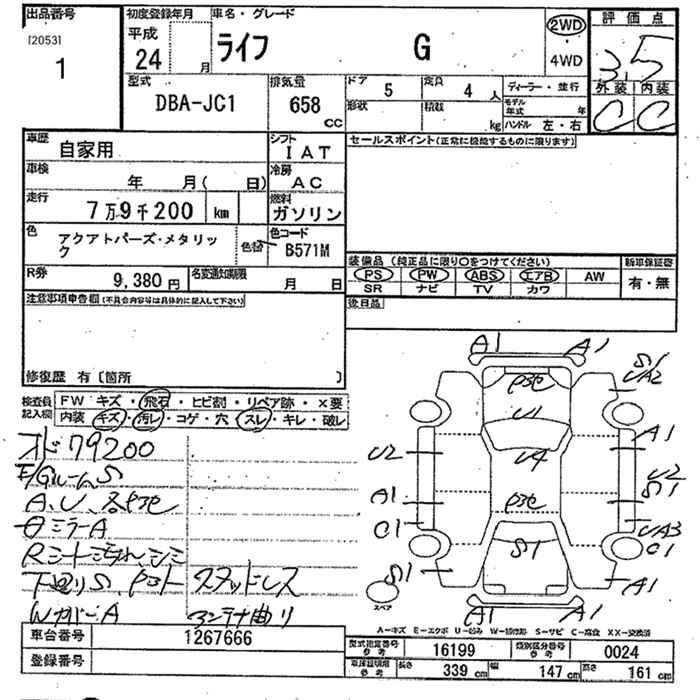 出品番号
[2053]
1
初度登録年月
平成
24
月
車名・グレード
ライフ
G
2WD
4WD
評価点
3.5
外装
内装
C
C
型式
DBA-JC1
排気量
658
cc
ドア
5
定員
4
人
形状
積載
kg
ディーラー・並行
モデル年式
年
ハンドル 左・右
車歴
自家用
シフト
IAT
車検
年 月( 日)
冷房
AC
走行
7万9千200
km
燃料
ガソリン
色
アクアトパーズ・メタリック
色替
色コード
B571M
R券
9,380円
名変通知期限
月 日
セールスポイント(正常に機能するものに限ります)
装備品 (純正品に限り○をつけてください)
PS
PW
ABS
エアB
AW
SR
ナビ
TV
カワ
新車保証書
有・無
後日品
注意事項申告欄(不具合内容等は具体的に記入して下さい)
修復歴 有〔箇所 〕
検査員記入欄
FW キズ・飛石・ヒビ割・リペア跡・×要
内装 キズ・汚レ・コゲ・穴・スレ・キレ・破レ
オド79200
E/GルームS
A、U、各P3色
ミラーA
下廻りS、
スタッドレス
WカバーA
アンテナ曲り
A1
A1
S1
UA2
P3色
U1
A1
U2
U4
U2
S1
A1
P3色
C1
UA3
C1
S1
S1
A1
A1
A1
スペア
A-キズ E-エクボ U-凹み W-補修跡 S-サビ C-腐食 XX-交換済
車台番号
1267666
登録番号
型式指定番号
参考
16199
類別区分番号
参考
0024
車検証明細
参考
長さ
339 cm
幅
147 cm
高さ
161 cm